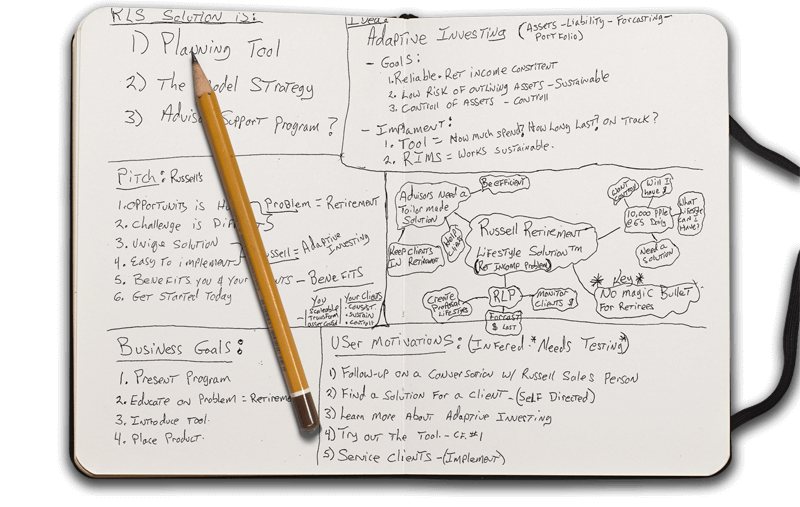 RLS Solution is:
1) Planning Tool
2) The Model Strategy
3) Advisor Support Program?
Idea:
Adaptive Investing (Assets - Liability - Forcasting -
Portfolio)
- Goals:
1. Reliable. Ret income constitent
2. Low Risk of outlining Assets - Sustainable
3. Controll of Assets - Controll
- Implament:
1. Tool = How much spend? How long last? On track?
2. RIMS = Works sustainable.
Pitch: Russell's
1. Opportunity is Problem = Retirement
2. Challenge is
3. Unique Solution
Russell = Adaptive
Investing
4. Easy to implement
5. Benefits you & your - Benefits
6. Get Started Today
You
Scaleable
Transform
Your Clients
Consist.
Sustain
Controll
Advisors Need a
Tailor made
Solution
Be efficient
Keep Clients
In Retirement
Russell Retirement
Lifestyle Solution™
(Ret Income Problem)
Want
Control
Will I
have $
10,000 PPle
@65 Daily
What
Lifestyle
can I
Have?
Need a
Solution
* Key *
No Magic Bullet
For Retirees
RLP
Create
Lifestyles
Monitor
Clients $
Forcast
$ Last
Business Goals:
1. Present Program
2. Educate on Problem = Retirement
3. Introduce Tool.
4. Place Product.
User Motivations: (Infered *Needs Testing*)
1) Follow-up on a Conversation w/ Russell Sales Person
2) Find a Solution for a Client - (Self Directed)
3) Learn More About Adaptive Investing
4) Try out The Tool - CF. #1
5) Service Clients - (Implement)